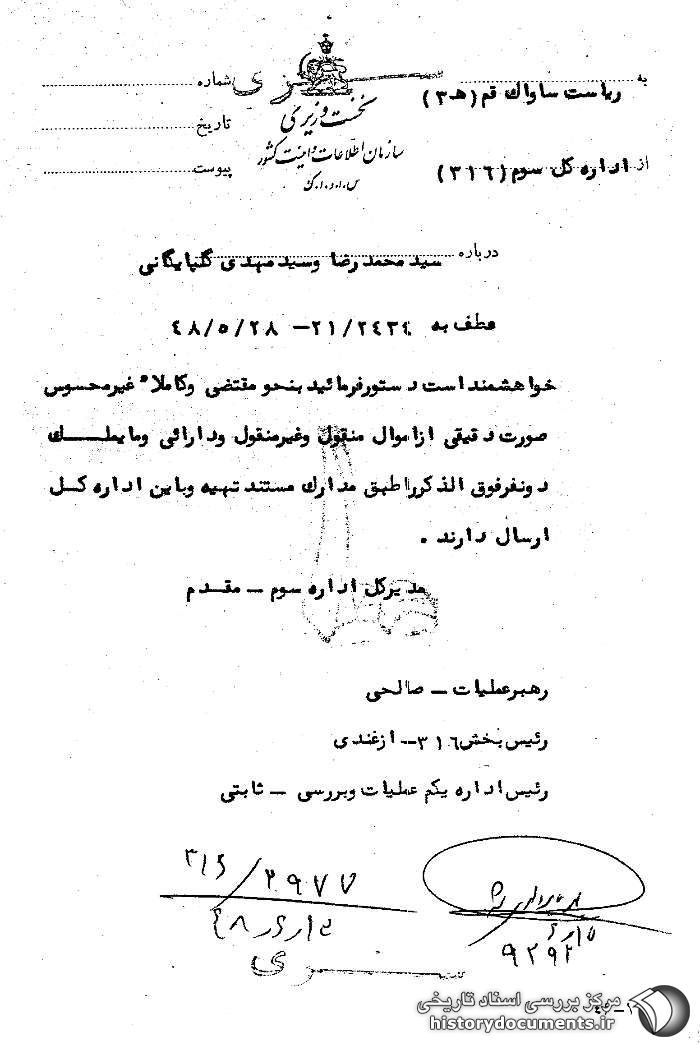 سری
به ریاست ساواك قم (هـ ۳)
شماره
نخست وزیری
تاریخ
سازمان اطلاعات و امنیت کشور
از اداره کل سوم (۳۱۶)
پیوست
س.ا.و.ا.ك
درباره سید محمد رضا وسید مهدی گلپایگانی
عطف به ۲۱/۲۴۳۴ – ۴۸/۵/۲۸
خواهشمند است دستور فرمائید بنحو مقتضی وکاملاً غیرمحسوس
صورت دقیقی ازاموال منقول وغیرمنقول ودارائی ومایملك
دونفرفوق الذکررا طبق مدارك مستند تهیه وباین اداره کل
ارسال دارند .
مدیرکل اداره سوم – مقدم
رهبرعملیات – صالحی
رئیس بخش ۳۱۶ – ازغندی
رئیس اداره یکم عملیات وبررسی – ثابتی
۳۱۶/۲۹۷۷
۹۲۹۲
سری
مرکز بررسی اسناد تاریخی
historydocuments.ir